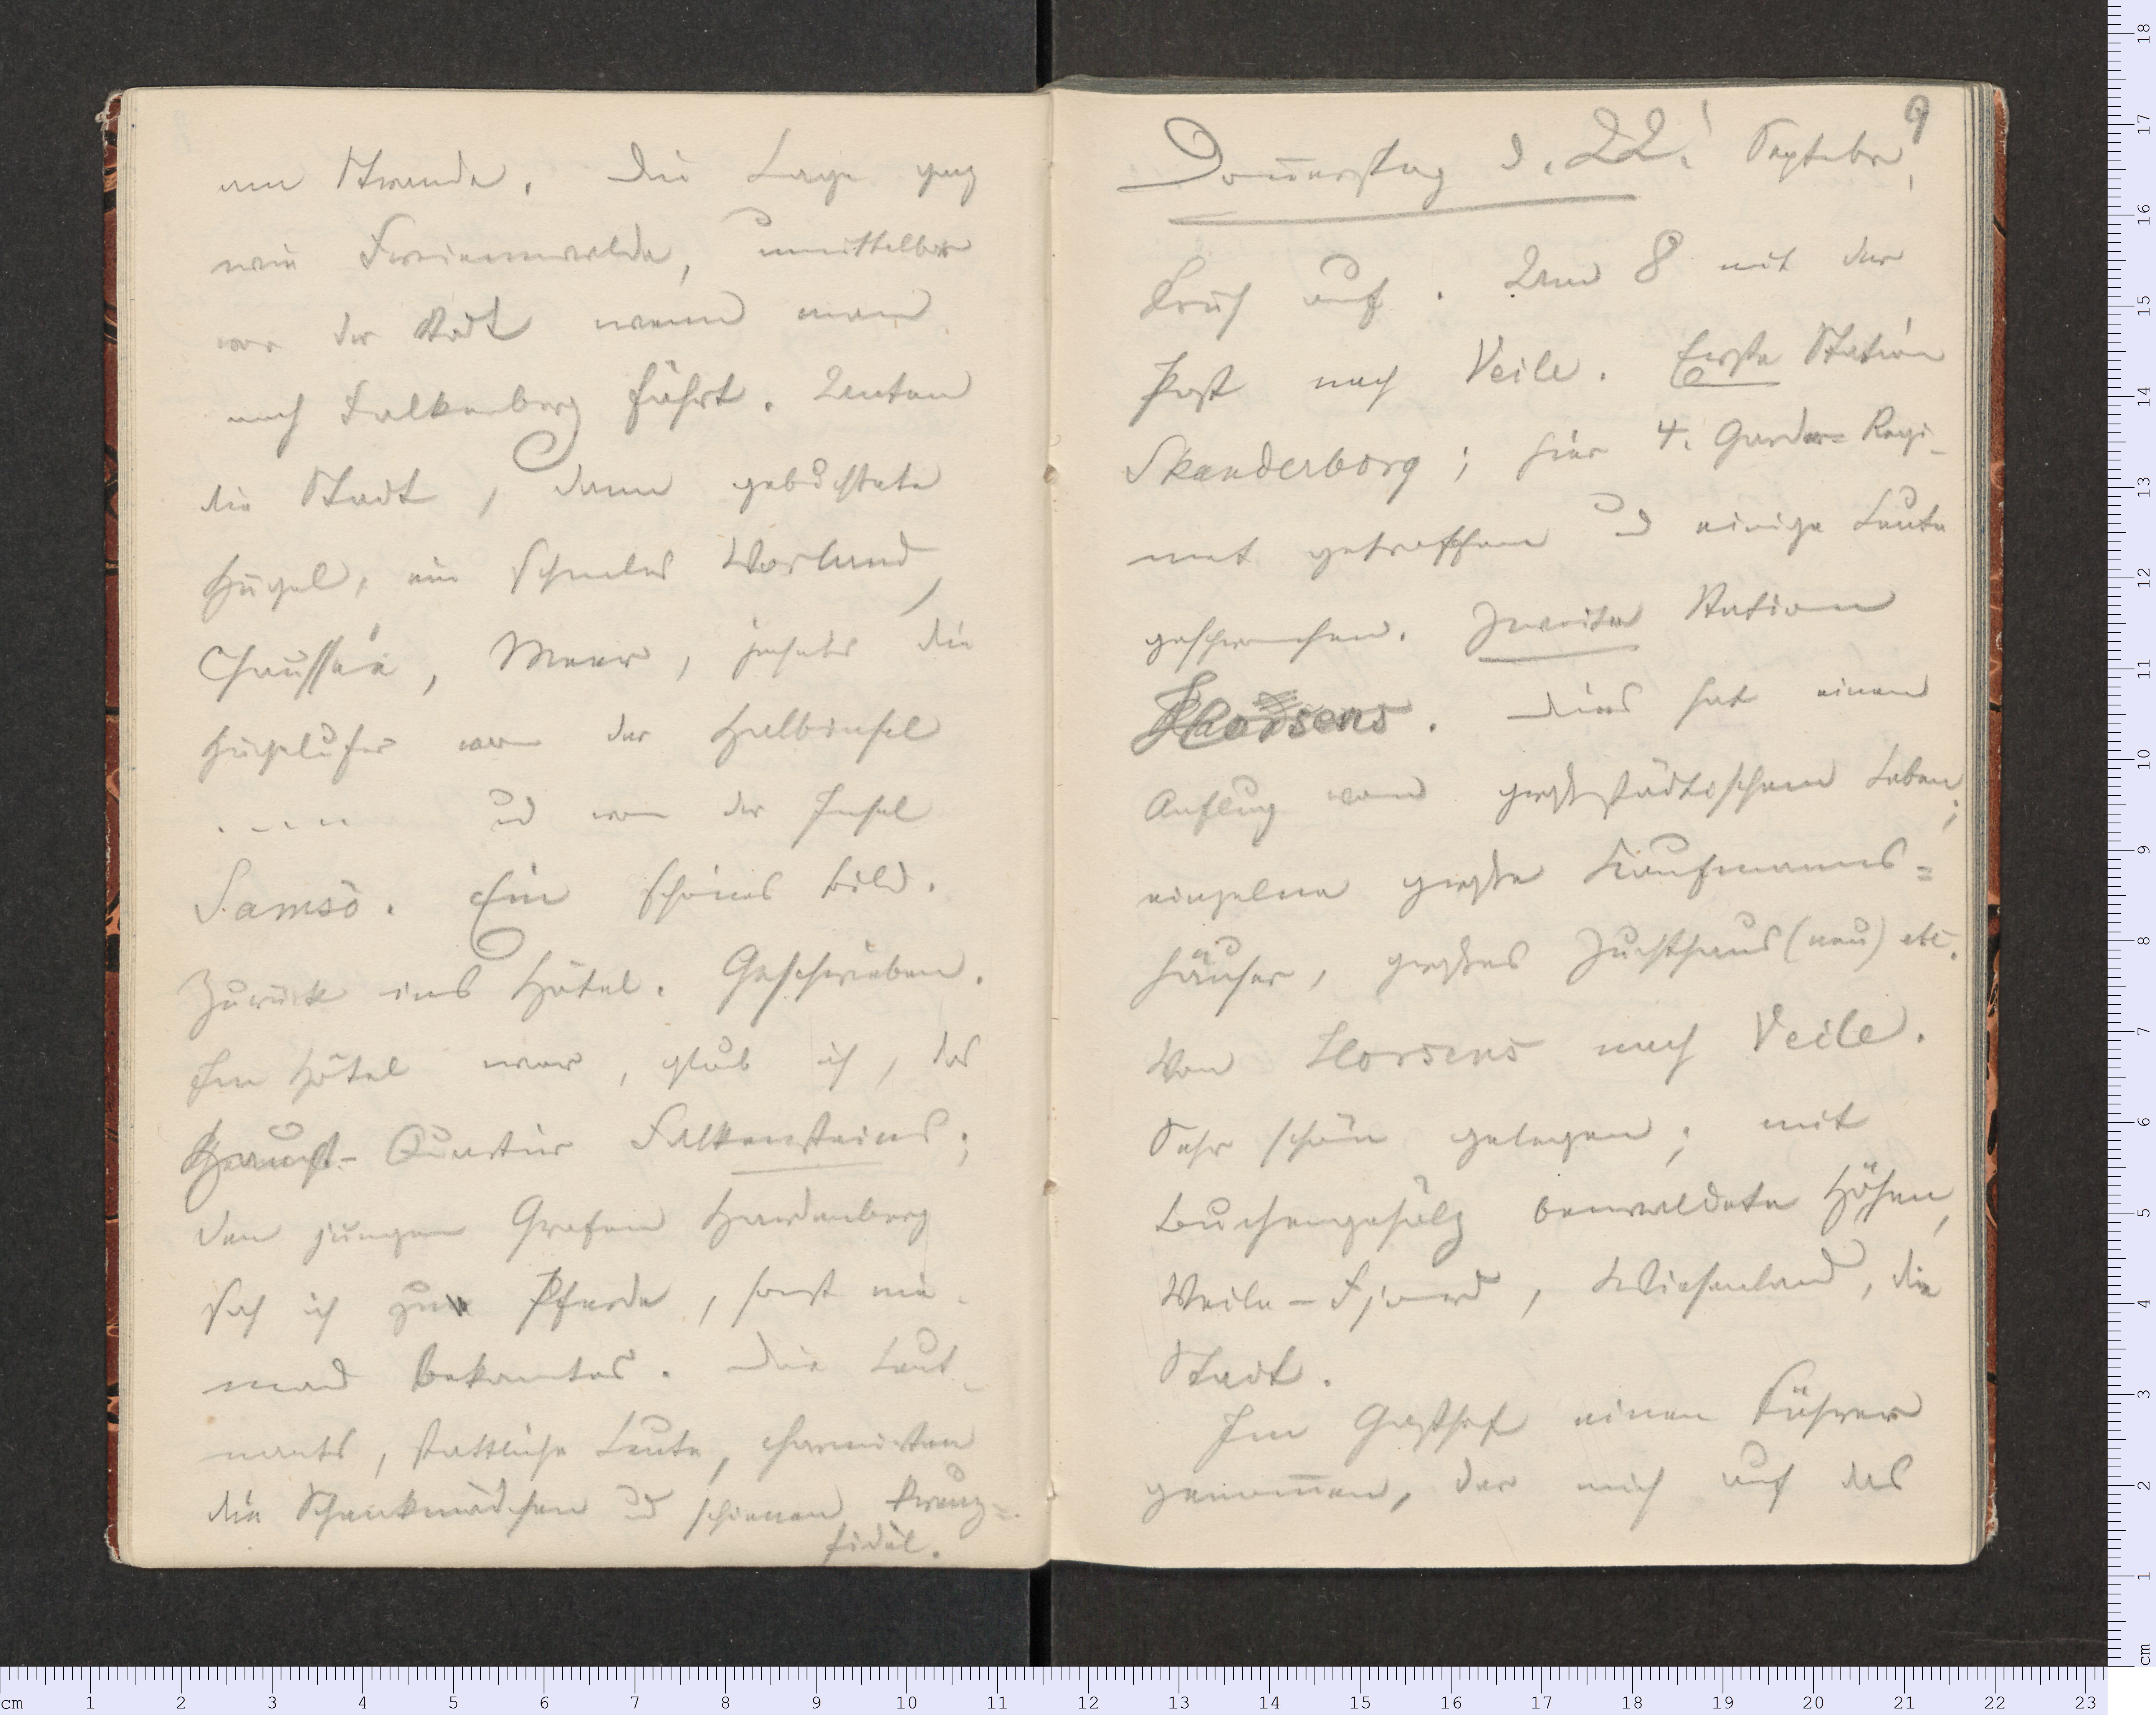 am Strande. Die Lage ganz
wie Freienwalde, unmittelbar
vor der Stadt wenn man
nach Falkenberg fährt. Unten
die Stadt, dann gebuchtete
Hügel, ein schmales Vorland,
Chaussée, Meer, jenseits die
Hügelufer von der Halbinsel
. _ _ .. und von der Insel
Samsö. Ein schönes Bild.
Zurück ins Hôtel. Geschrieben.
Im Hôtel war, glaub ich, das
Haupt-Quartier Falkensteins;
den jungen Grafen Hardenberg
sah ich zu Pferde, sonst nie-
mand bekanntes. Die Leut-
nants, stattliche Leute, charmirten
die Schenkmädchen und schienen kreuz-
fidèl.
9
Donnerstag d. 22. Septebr,
Früh auf. Um 8 mit der
Post nach Veile. Erste Station
Skanderborg; hier 4. Garde-Regi-
ment getroffen und einige Leute
gesprochen. Zweite Station
Horsens. Dies hat einen
Anflug von großstädtischem Leben;
einzelne große Kaufmanns-
häuser, großes Zuchthaus (neu) etc.
Von Horsens nach Veile.
Sehr schön gelegen; mit
Buchengehölz bewaldete Höhen,
Weile-Fjord, Wiesenland, die
Stadt.
Im Gasthof einen Führer
genommen, der mich auf das